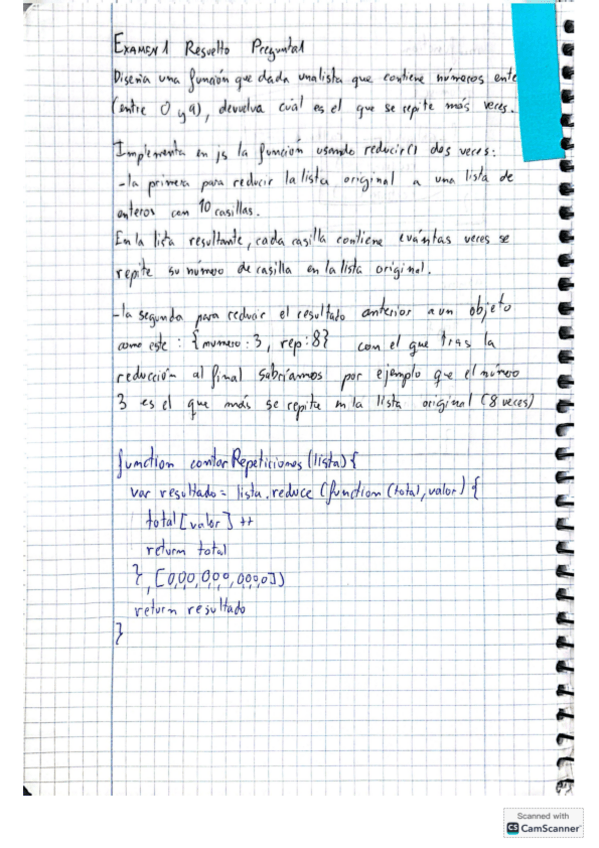 EXAMEN 1 Resuelto Pregunta 1
Diseña una función que dada una lista que contiene números ente
(entre 0 y 9), devuelva cuál es el que se repite más veces.
Implementa en js la función usando reducir() dos veces:
-la primera para reducir la lista original a una lista de
enteros con 10 casillas.
En la lista resultante, cada casilla contiene cuántas veces se
repite su número de casilla en la lista original.
-la segunda para reducir el resultado anterior a un objeto
como este : {numero : 3, rep: 8} con el que tras la
reducción al final sabríamos por ejemplo que el número
3 es el que más se repite en la lista original (8 veces)
function contarRepeticiones (lista) {
var resultado = lista.reduce (function (total, valor) {
total [valor] ++
return total
}, [0,0,0,0,0,0,0,0,0,0])
return resultado
}
Scanned with
CS CamScanner